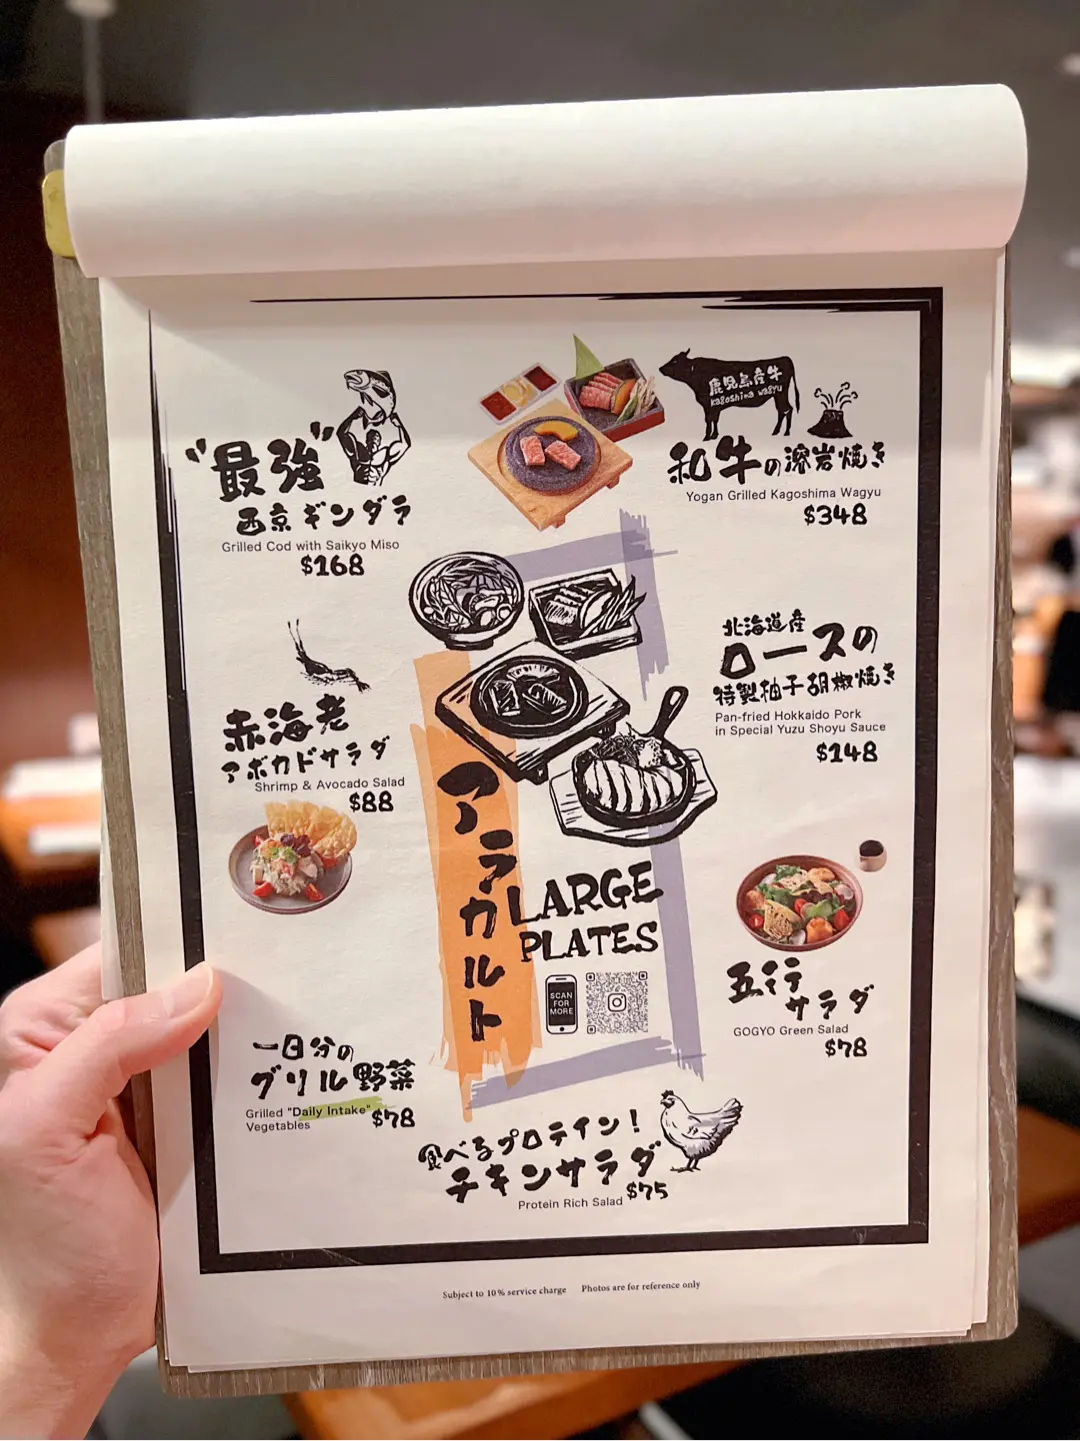 "最強"
西京ギンダラ
Grilled Cod with Saikyo Miso
$168
鹿児島産牛
kagoshima wagyu
和牛の溶岩焼き
Yogan Grilled Kagoshima Wagyu
$348
赤海老
アボカドサラダ
Shrimp & Avocado Salad
$88
北海道産
ロースの
特製柚子胡椒焼き
Pan-fried Hokkaido Pork
in Special Yuzu Shoyu Sauce
$148
アラカルト
LARGE
PLATES
SCAN
FOR
MORE
五行
サラダ
GOGYO Green Salad
$78
一日分の
グリル野菜
Grilled "Daily Intake"
Vegetables
$78
食べるプロテイン!
チキンサラダ
Protein Rich Salad
$75
Subject to 10% service charge Photos are for reference only